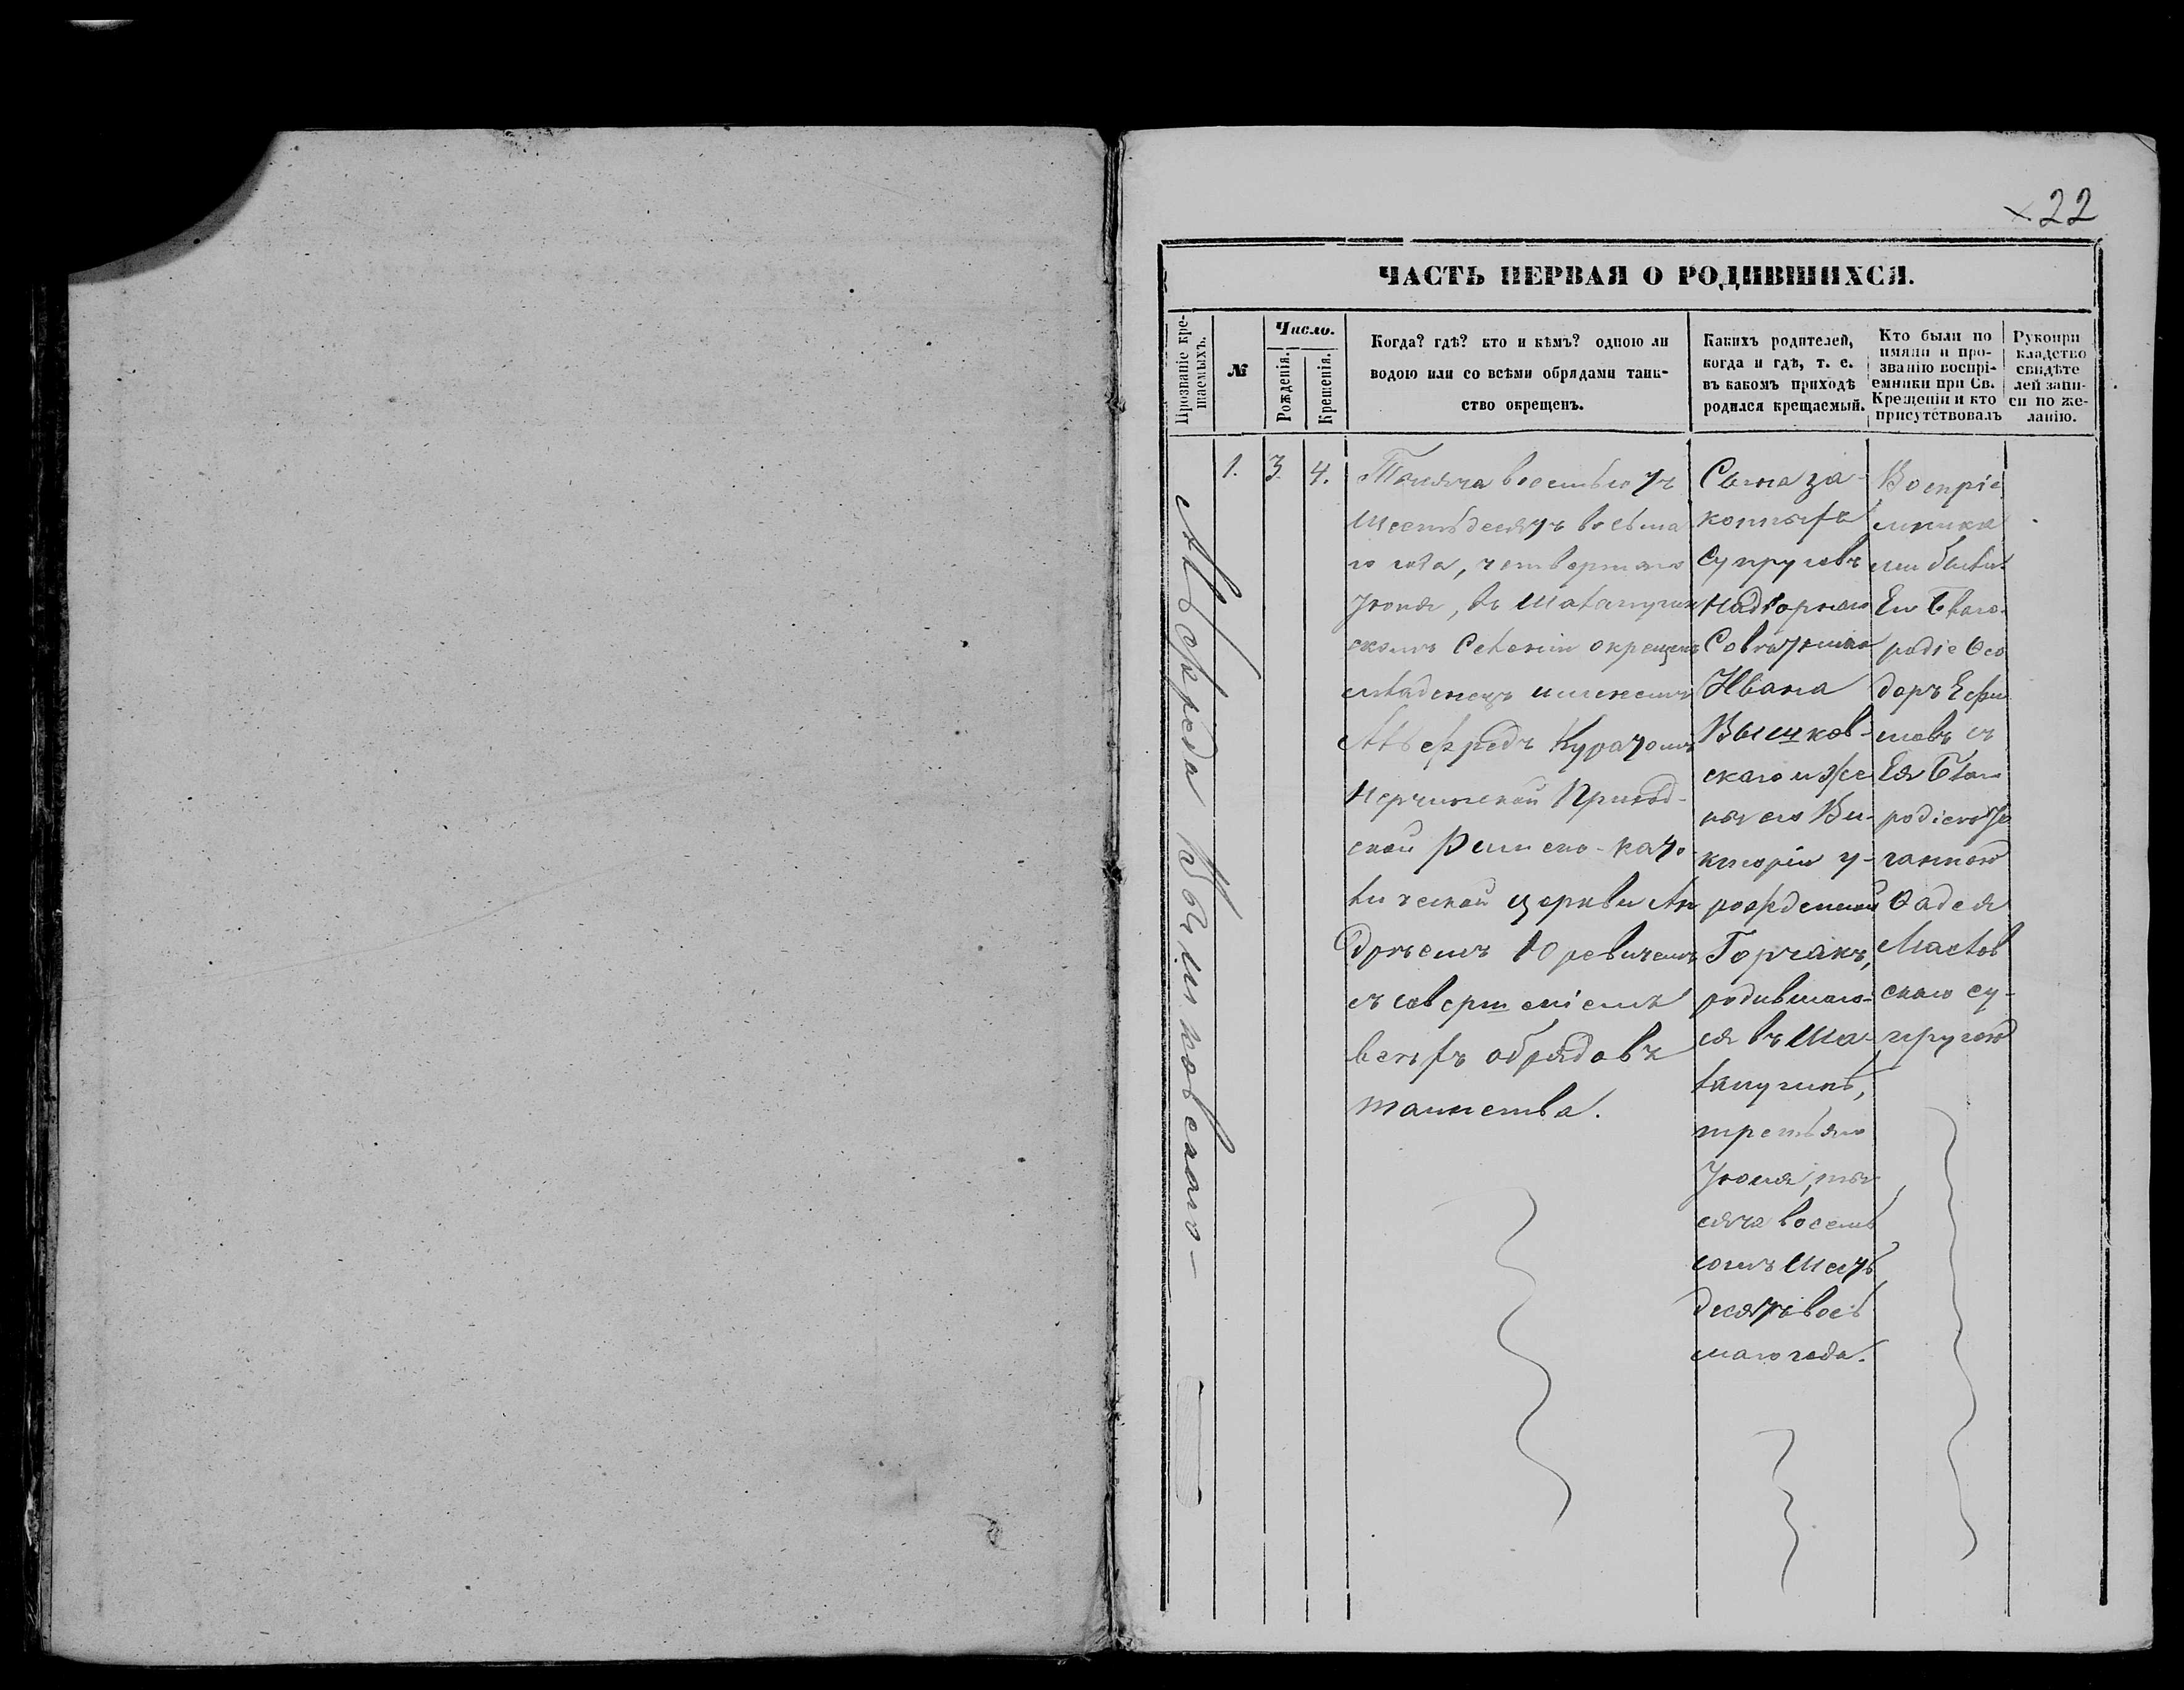 22
ЧАСТЬ ПЕРВАЯ О РОДИВШИХСЯ.
Прозваніе кре-
щаемыхъ.
№
Число.
Рожденія.
Крещенія.
Когда? гдѣ? кто и кѣмъ? одною ли
водою или со всѣми обрядами таин-
ство окрещенъ.
Какихъ родителей,
когда и гдѣ, т. е.
въ какомъ приходѣ
родился крещаемый.
Кто были по
имяни и про-
званію воспрі-
емники при Св.
Крещеніи и кто
присутствовалъ
Рукопри
кладство
свидѣте
лей запи-
си по же-
ланію.
Альфреда Высцковскаго
1.
3
4.
Тысяча восемьсотъ
Шестьдесятъ восьма
го года, четвертаго
Іюня, въ Шалапугин
скомъ Селеніи окрещенъ
младенецъ именемъ
Альфредъ Куратомъ
Нерчинской Приход-
ской Римско-като
лической церкви Ан
дреемъ Юревичемъ
съ совершеніемъ
всѣхъ обрядовъ
таинства.
Сына за-
конныхъ
Супруговъ
Надворнаго
Совѣтника
Ивана
Высцков-
скаго и Же
ны его Ви-
кторіи у-
рожденной
Горчакъ,
родившаго-
ся въ Ша-
лапугинѣ,
третьяго
Іюня, ты
сяча восемь
сотъ Шесть
десятъ вось
маго года.
Воспріе
мника
ми были:
Его Благо-
родіе Ѳео
доръ Ефи
мовъ съ
Ея Благо
родіемъ Іо
ганною
Ѳадея
Маслов
скаго су-
пругою